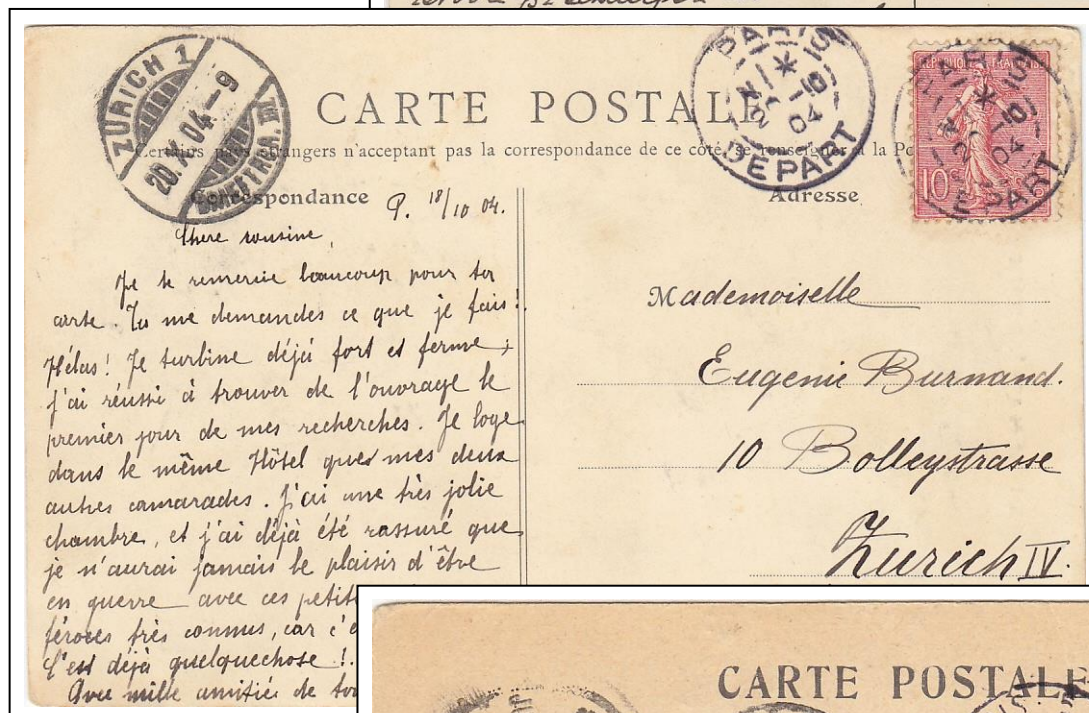 CARTE POSTALE
Certains pays étrangers n'acceptant pas la correspondance de ce côté, se renseigner à la Po
ZÜRICH 1
20.X.04.-9
BRIEFTRÄG. III
PARIS
DEPART
REPUBLIQUE FRANÇAISE
10
PARIS
DEPART
Correspondance
P. 18/10 04.
Chere cousine,
Je te remercie beaucoup pour ta
carte. Tu me demandes ce que je fais!
Hélas! Je turbine déjà fort et ferme;
j'ai réussi à trouver de l'ouvrage le
premier jour de mes recherches. Je loge
dans le même Hôtel que mes deux
autres camarades. J'ai une très jolie
chambre, et j'ai déjà été rassuré que
je n'aurai jamais le plaisir d'être
en guerre avec ces petits
féroces très connus, car c'e
C'est déjà quelquechose!
Avec mille amitiés de ton
Adresse
Mademoiselle
Eugenie Burnand.
10 Bolleystrasse
Zurich IV.
CARTE POSTALE